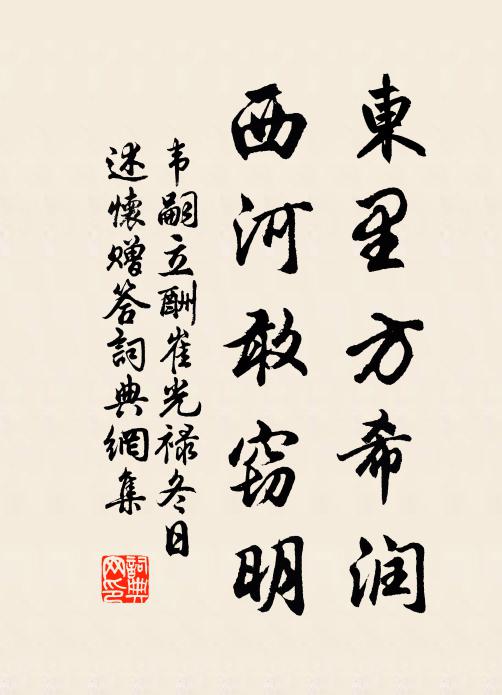 東里方希润
西河敢窃明
韦嗣立酬崔光禄冬日
述懷赠答詞典網集
詞典
网印